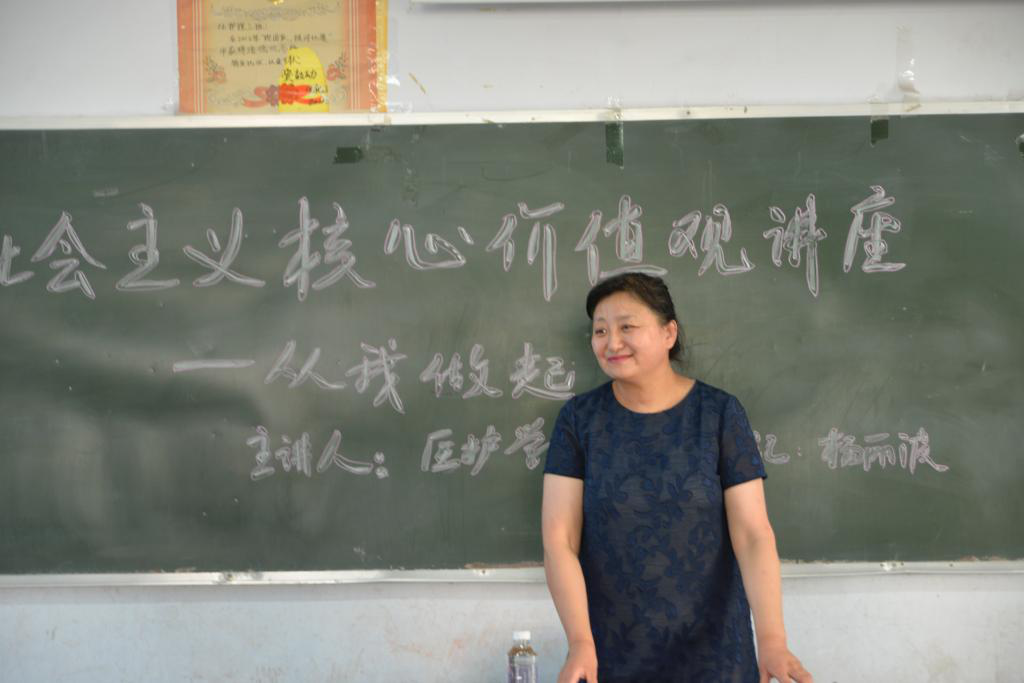 奖
会主义核心价值观讲座
一从我做起
主讲人：医护学 记：杨丽波